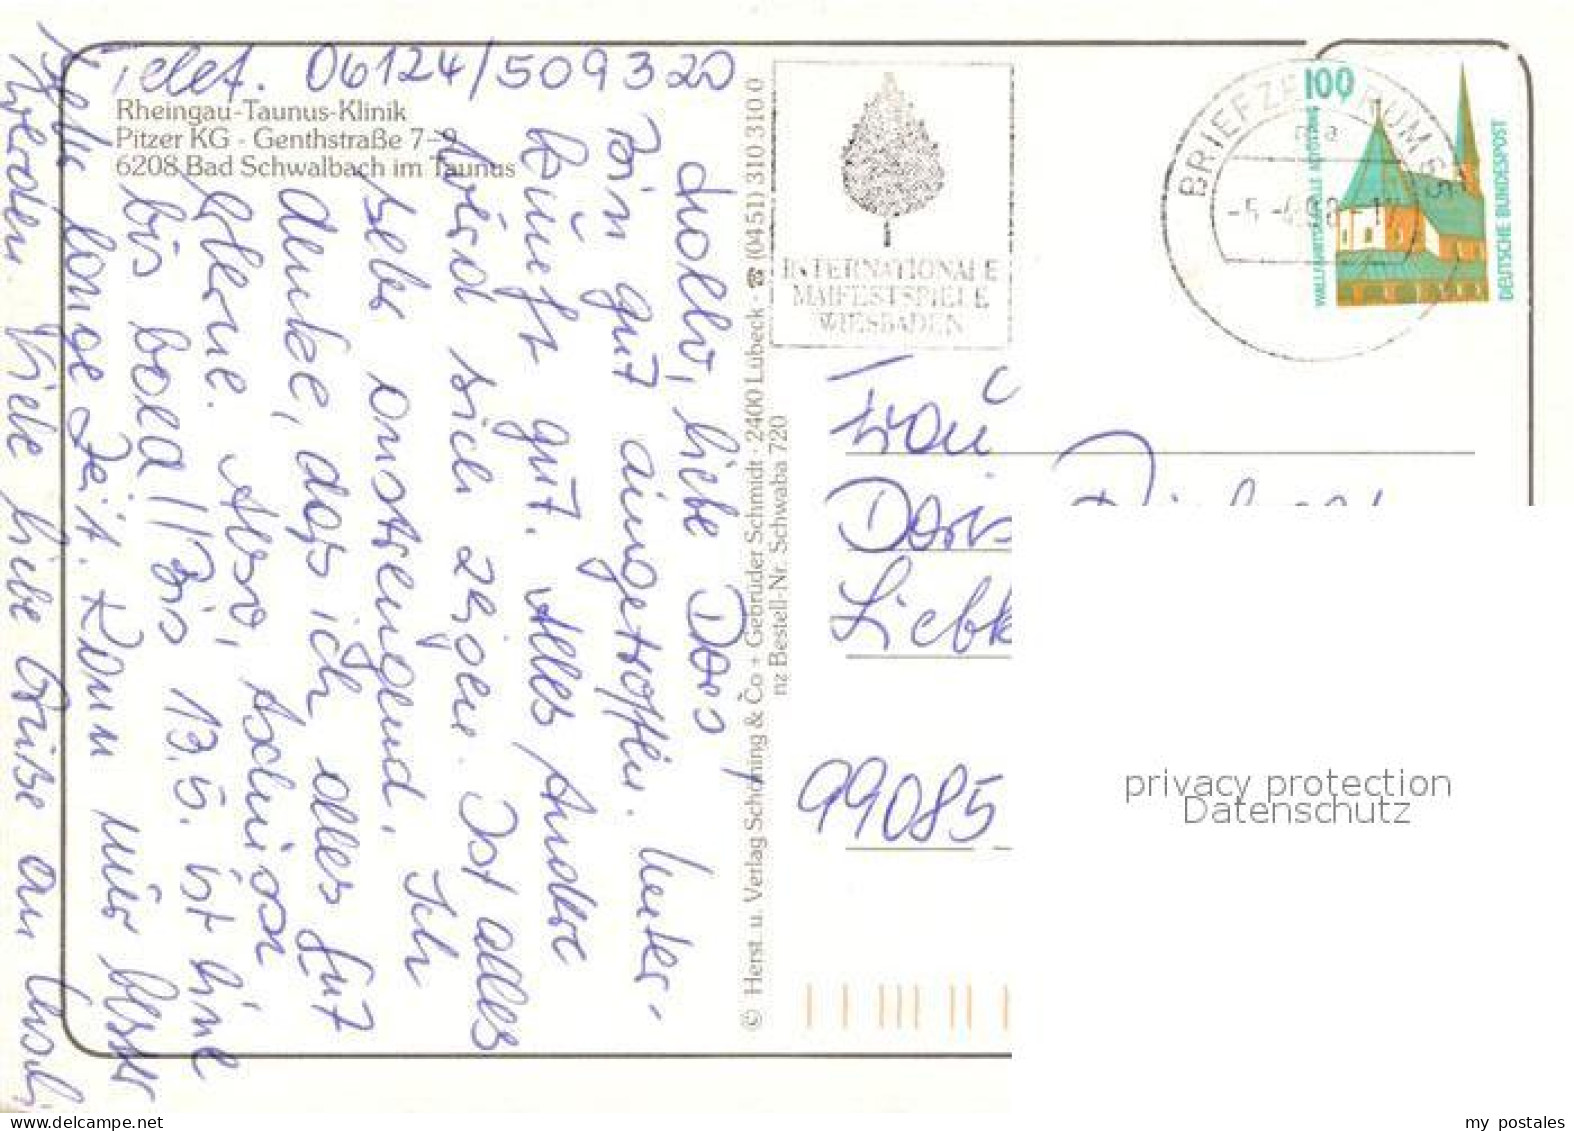 Telef. 06124/509320
Rheingau-Taunus-Klinik
Pitzer KG - Genthstraße 7-9
6208 Bad Schwalbach im Taunus
Hallo, liebe Doris
Bin gut eingetroffen. Unter-
kunft gut. Alles Andere
wird sich zeigen. Ist alles
sehr anstrengend. Ich
denke, dass ich alles gut
lerne. Also, tschüss
bis bald! Bis 13.5. ist eine
lange Zeit. Kann nur besser
werden. Viele liebe Grüße an
© Herst. u. Verlag Schöning & Co + Gebrüder Schmidt · 2400 Lübeck · ☎ (0451) 310 310 0
nz Bestell-Nr. Schwaba 720
INTERNATIONALE
MAIFESTSPIELE
WIESBADEN
BRIEFZENTRUM 65
100
WALLFAHRTSKAPELLE ALTÖTTING
DEUTSCHE BUNDESPOST
Frau
Doris
Liebk
99085
privacy protection
Datenschutz
my postales